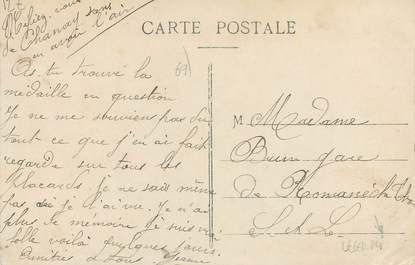 Méfiez-vous
de Chanay sans
en avoir l'air
CARTE POSTALE
69
As tu trouvé la
médaille en question
Je ne me souviens pas du
tout ce que j'en ai fait
regarde sur tous les
placards. Je ne sais même
pas si je l'ai vue. Je n'ai
plus de mémoire je suis
folle voilà quelques jours.
Amitiés à tous Jeanne
M Madame
Brun gare
de Romanèche
S. et L.